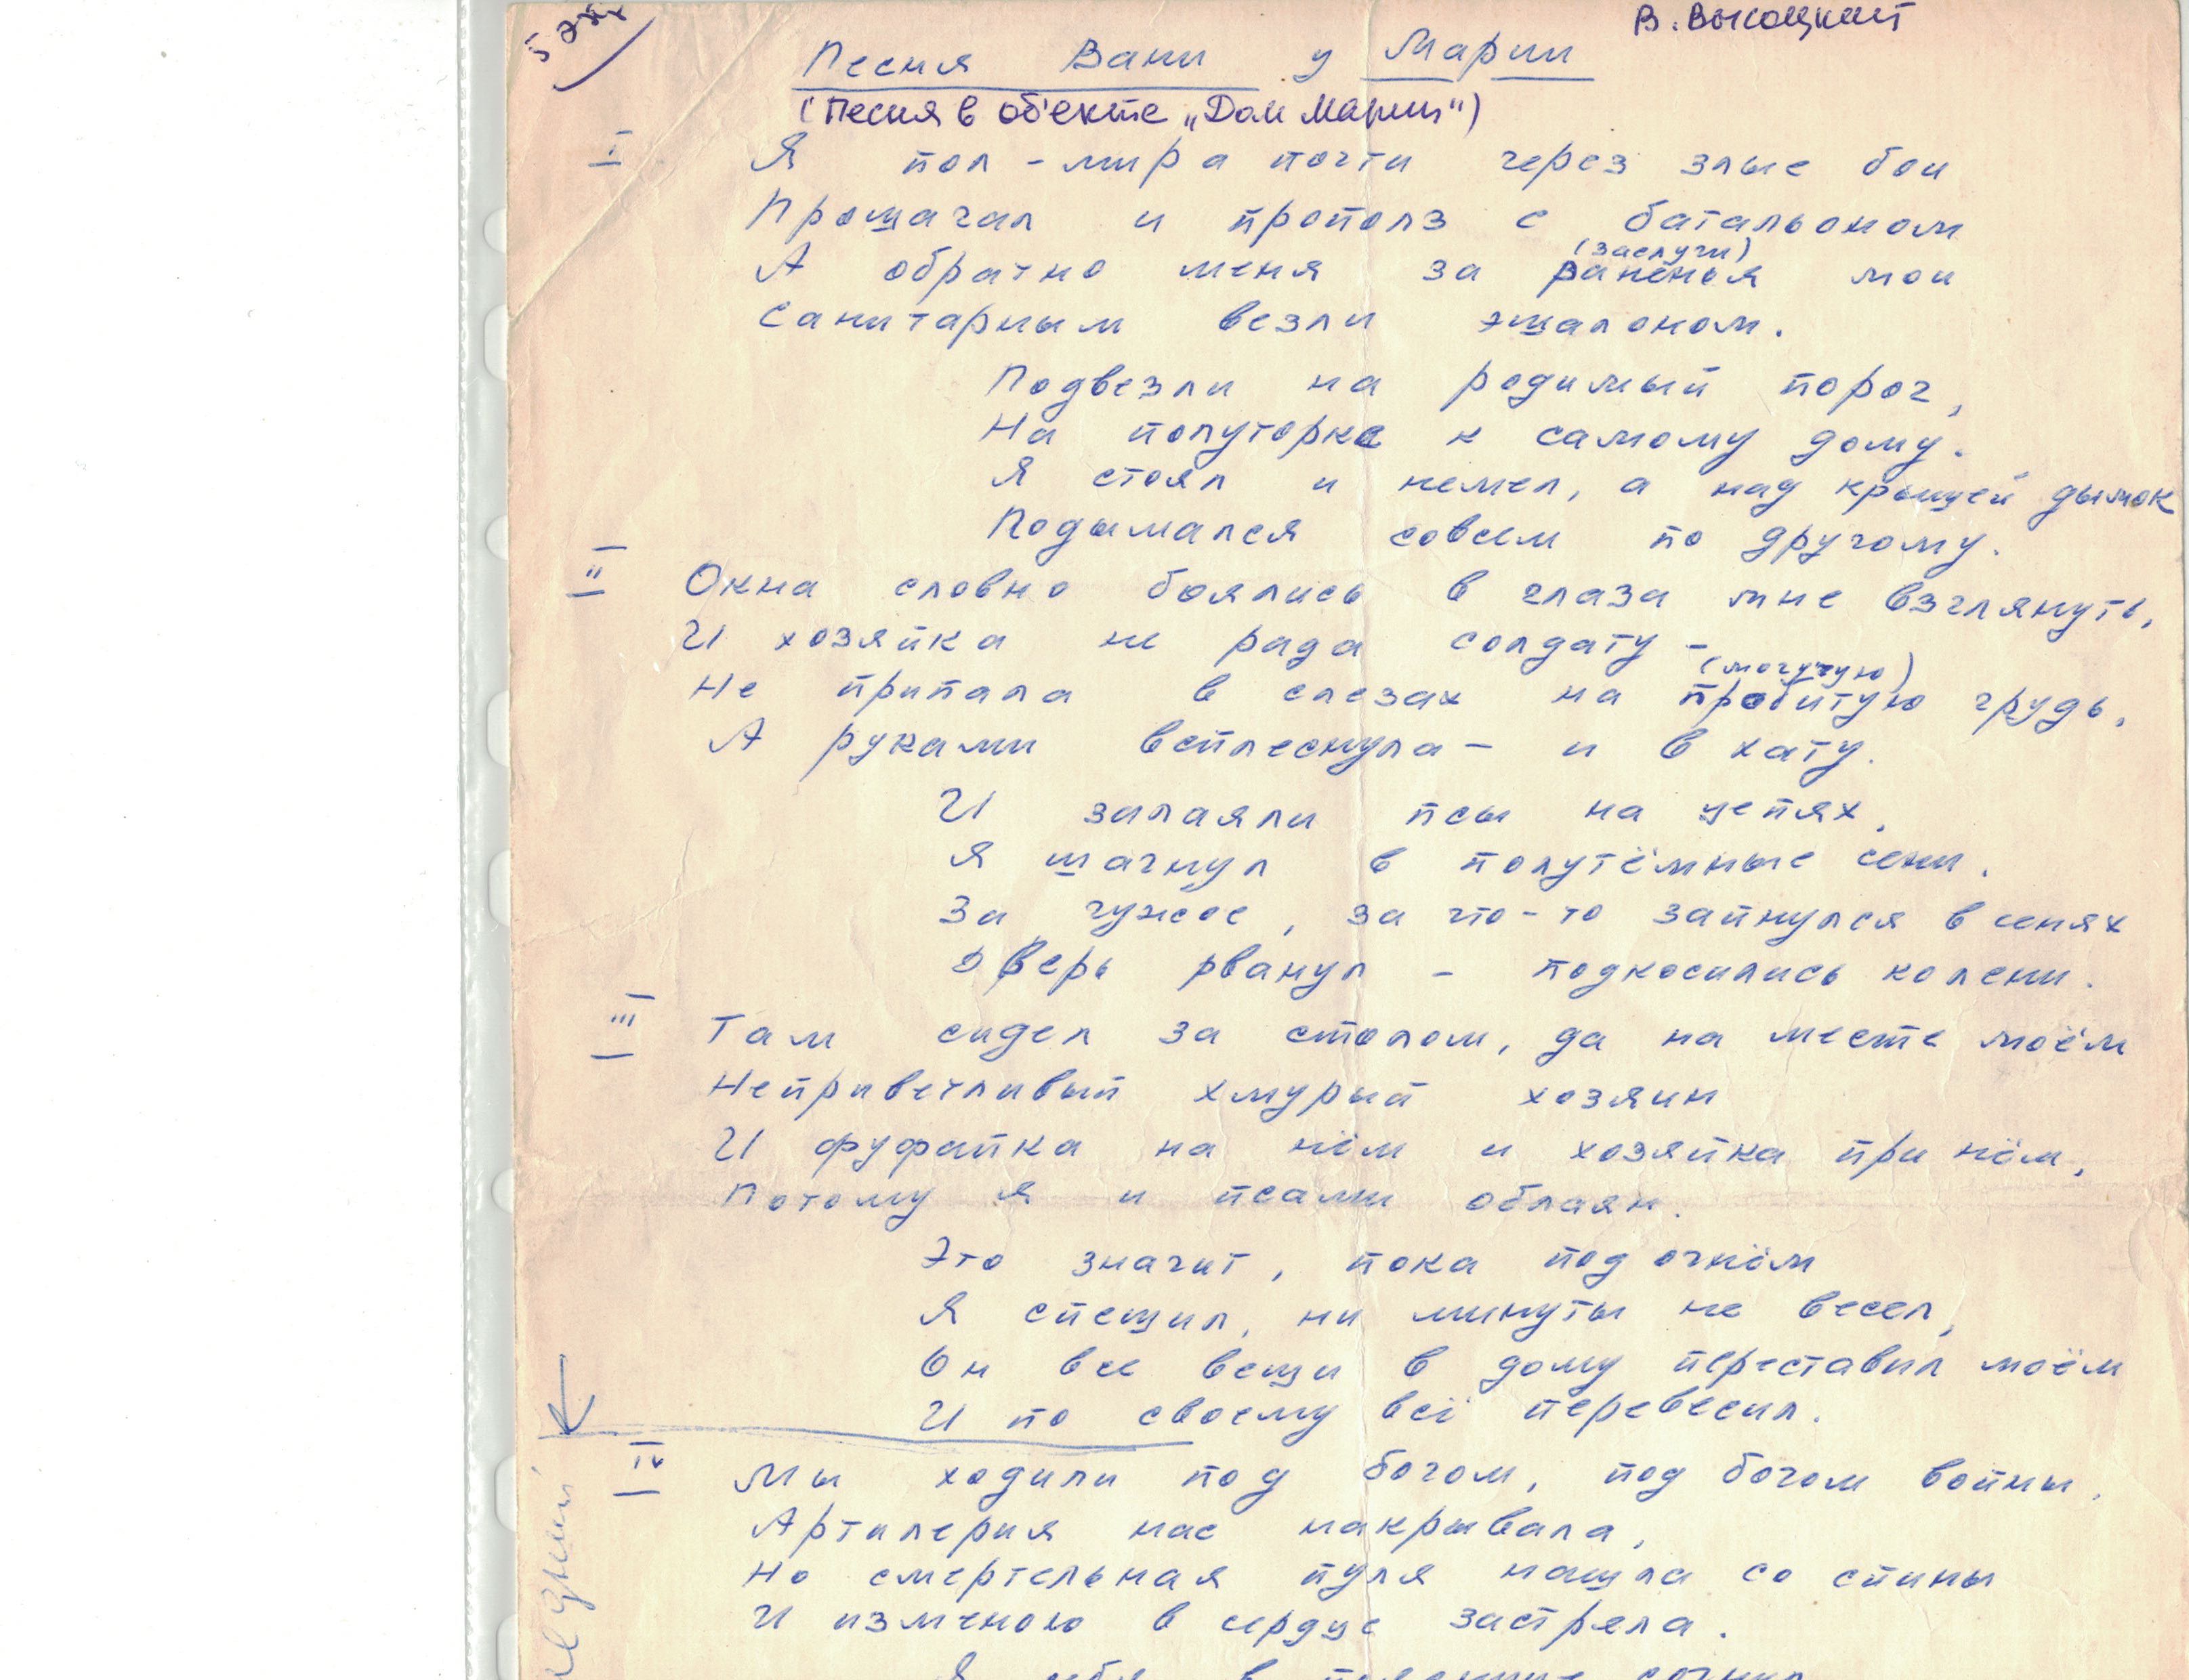 5 экз
В. Высоцкий
Песня Вани у Марии
(Песня в об'екте „Дом Марии")
I
Я пол-мира почти через злые бои
Прошагал и прополз с батальоном
(заслуги)
А обратно меня за раненья мои
Санитарным везли эшалоном.
Подвезли на родимый порог,
На полуторке к самому дому.
Я стоял и немел, а над крышей дымок
Подымался совсем по другому.
II
Окна словно боялись в глаза мне взглянуть,
И хозяйка не рада солдату –
(могучую)
Не припала в слезах на пробитую грудь,
А руками всплеснула – и в хату.
И залаяли псы на цепях,
Я шагнул в полутёмные сени.
За чужое, за что-то запнулся в сенях
Дверь рванул – подкосились колени.
III
Там сидел за столом, да на месте моём
Неприветливый хмурый хозяин
И фуфайка на нём и хозяйка при нём,
Потому я и псами облаян.
Это значит, пока под огнём
Я спешил, ни минуты не весел,
Он все вещи в дому переставил моём
И по своему всё перевесил.
IV
Мы ходили под богом, под богом войны,
Артилерия нас накрывала,
Но смертельная пуля нашла со спины
И изменою в сердце застряла.
Я себя в пояснице согнул